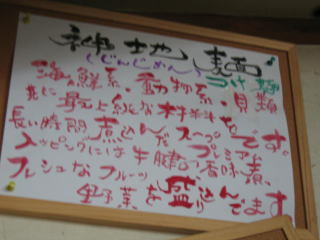 神地麺
(じんじめん) つけ麺
海鮮系・動物系・貝類
共に最上級な材料を
長い時間煮込んだスープです
トッピングには牛腱プレミアム香味煮
フレッシュなフルーツ
野菜を盛り込んでます